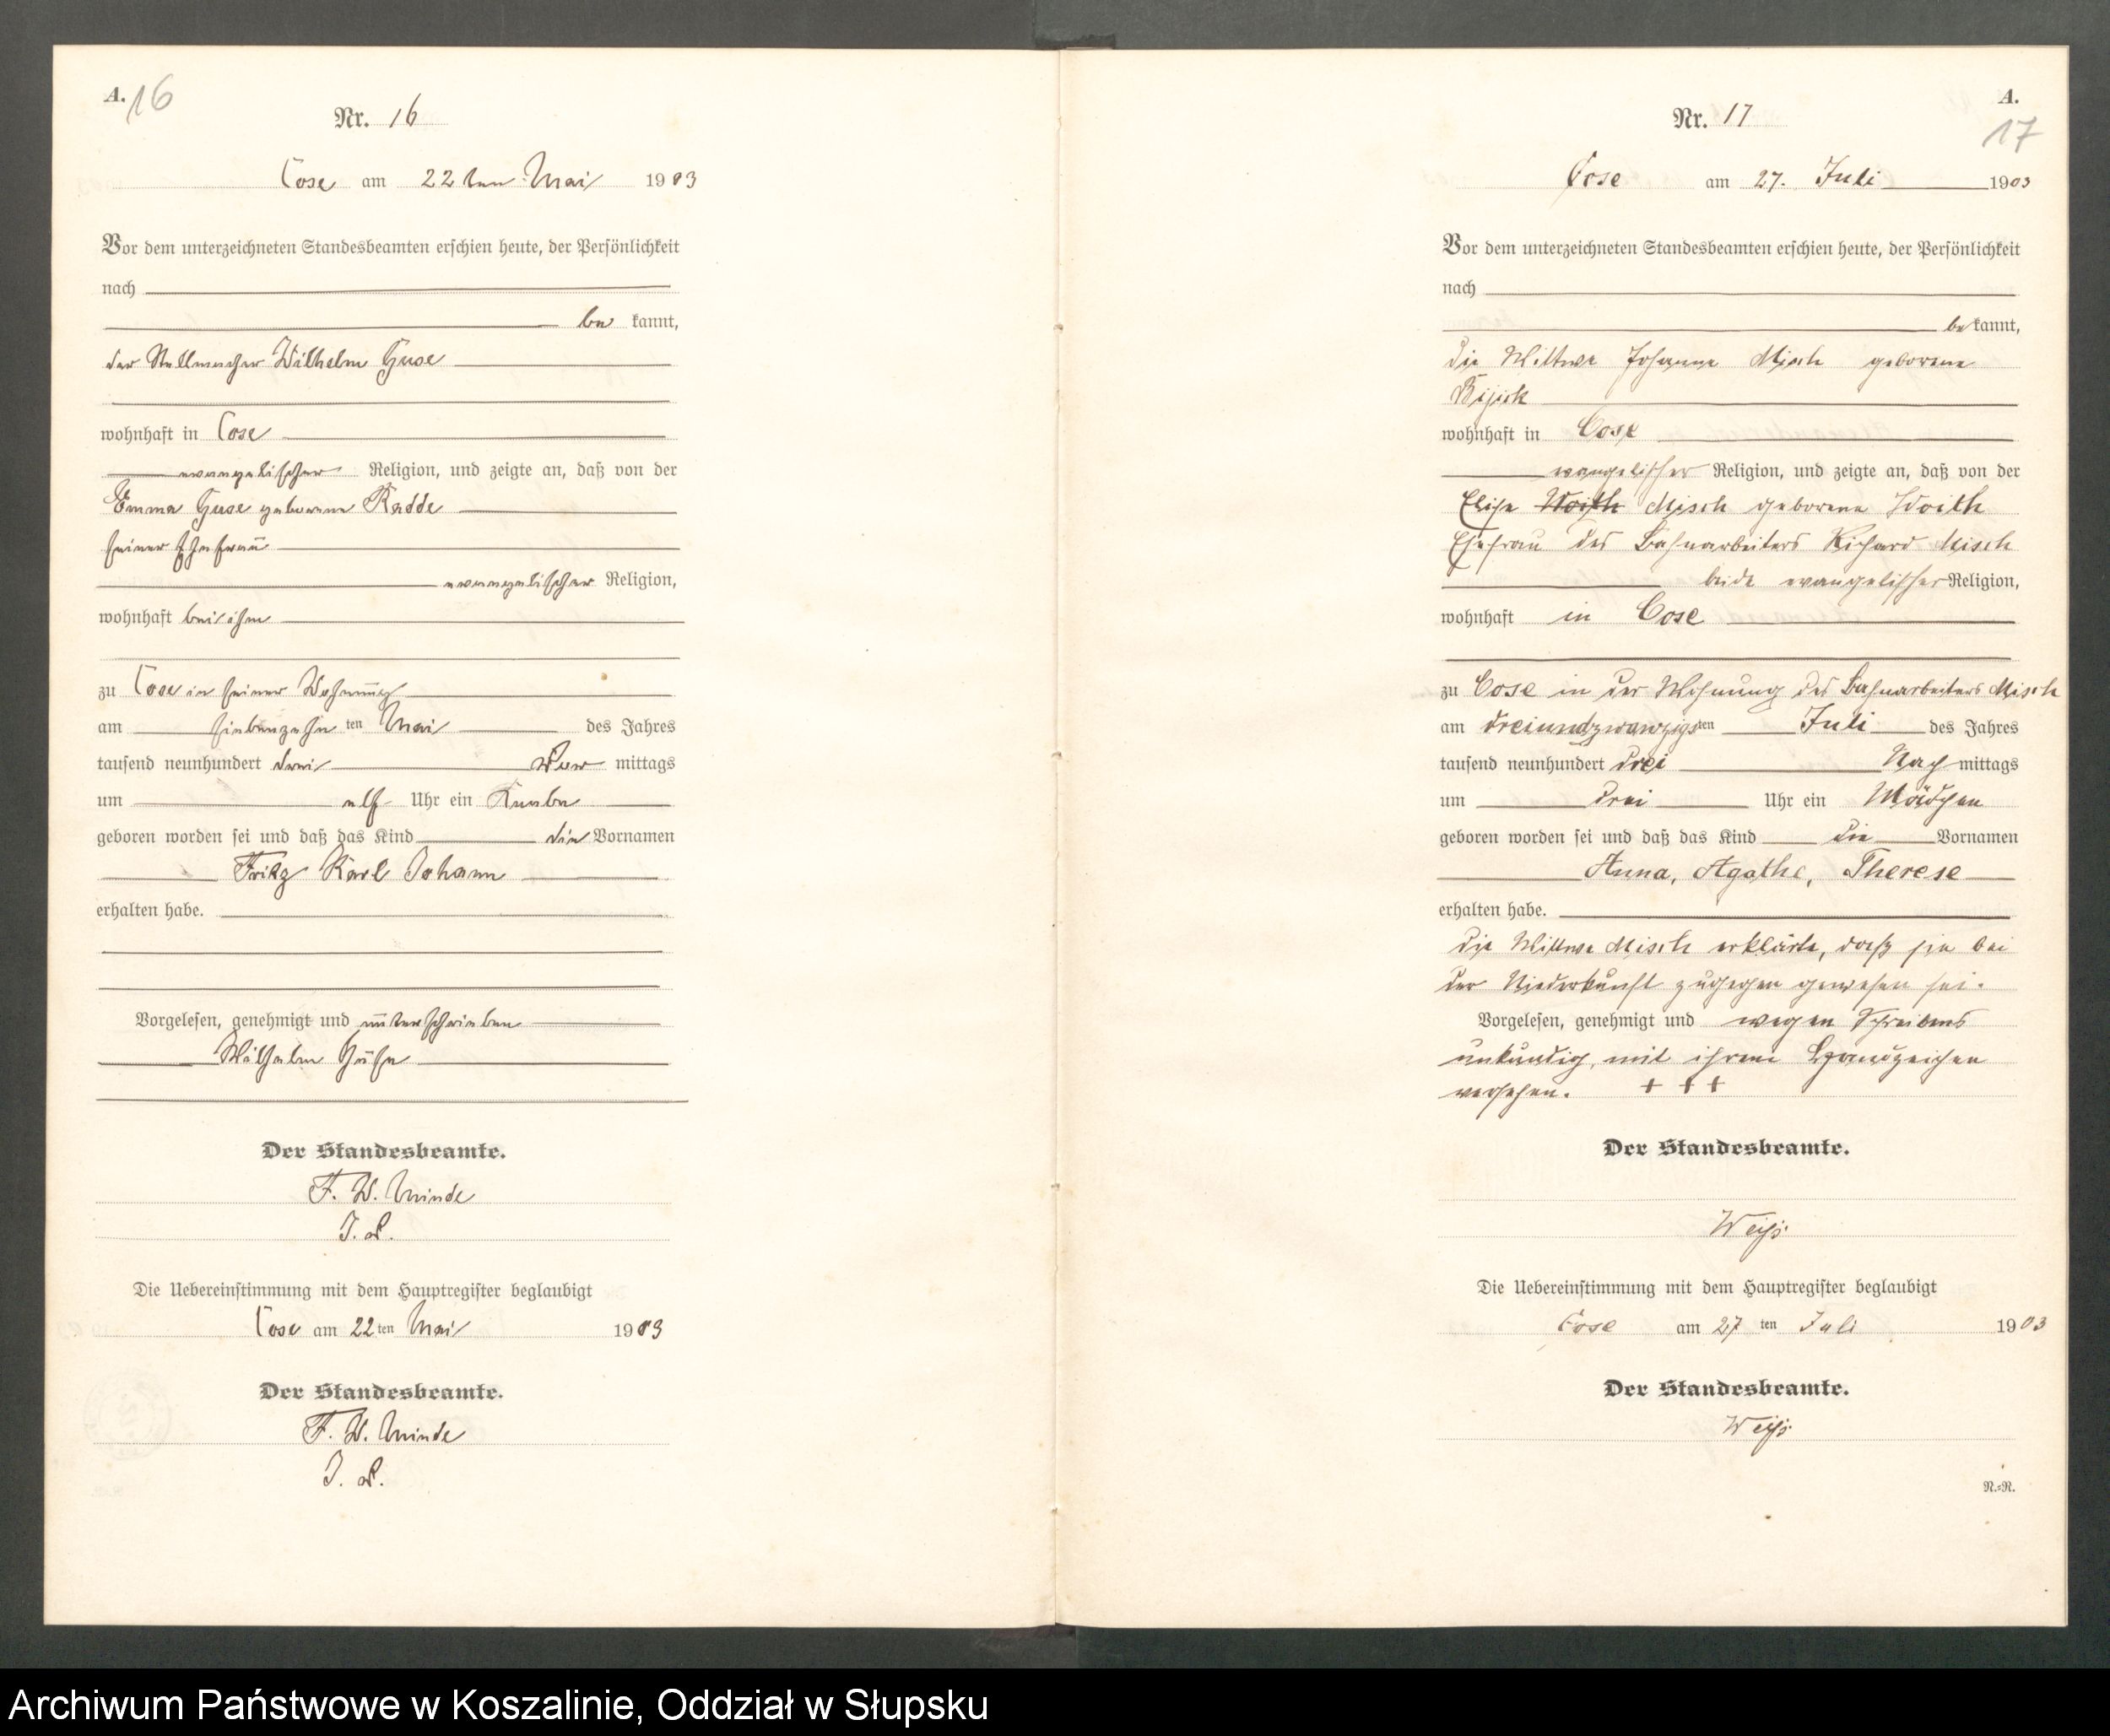 A. 16
Nr. 16
Cose am 22ten Mai 1903
Vor dem unterzeichneten Standesbeamten erschien heute, der Persönlichkeit
nach
be kannt,
der Stellmacher Wilhelm Guse
wohnhaft in Cose
evangelischer Religion, und zeigte an, daß von der
Emma Guse geborene Radde
seiner Ehefrau
evangelischer Religion,
wohnhaft bei ihm
zu Cose in seiner Wohnung
am siebenzehn ten Mai des Jahres
tausend neunhundert drei Vor mittags
um elf Uhr ein Knabe
geboren worden sei und daß das Kind die Vornamen
Fritz Karl Johann
erhalten habe.
Vorgelesen, genehmigt und unterschrieben
Wilhelm Guse
Der Standesbeamte.
F. W. Minde
Die Uebereinstimmung mit dem Hauptregister beglaubigt
Cose am 22 ten Mai 1903
Der Standesbeamte.
F. W. Minde
A.
17
Nr. 17
Cose am 27. Juli 1903
Vor dem unterzeichneten Standesbeamten erschien heute, der Persönlichkeit
nach
be kannt,
die Wittwe Johanna Misch geborene
wohnhaft in Cose
evangelischer Religion, und zeigte an, daß von der
Elise Woith Misch geborene Woith
Ehefrau des Bahnarbeiters Richard Misch
beide evangelischer Religion,
wohnhaft in Cose
zu Cose in der Wohnung des Bahnarbeiters Misch
am dreiundzwanzigsten Juli des Jahres
tausend neunhundert drei Nach mittags
um drei Uhr ein Mädchen
geboren worden sei und daß das Kind die Vornamen
Anna, Agathe, Therese
erhalten habe.
Die Wittwe Misch erklärte, daß sie bei
der Niederkunft zugegen gewesen sei.
Vorgelesen, genehmigt und wegen Schreibens
unkundig, mit ihrem Handzeichen
versehen. + + +
Der Standesbeamte.
Weiß
Die Uebereinstimmung mit dem Hauptregister beglaubigt
Cose am 27 ten Juli 1903
Der Standesbeamte.
Weiß
N.=N.
Archiwum Państwowe w Koszalinie, Oddział w Słupsku